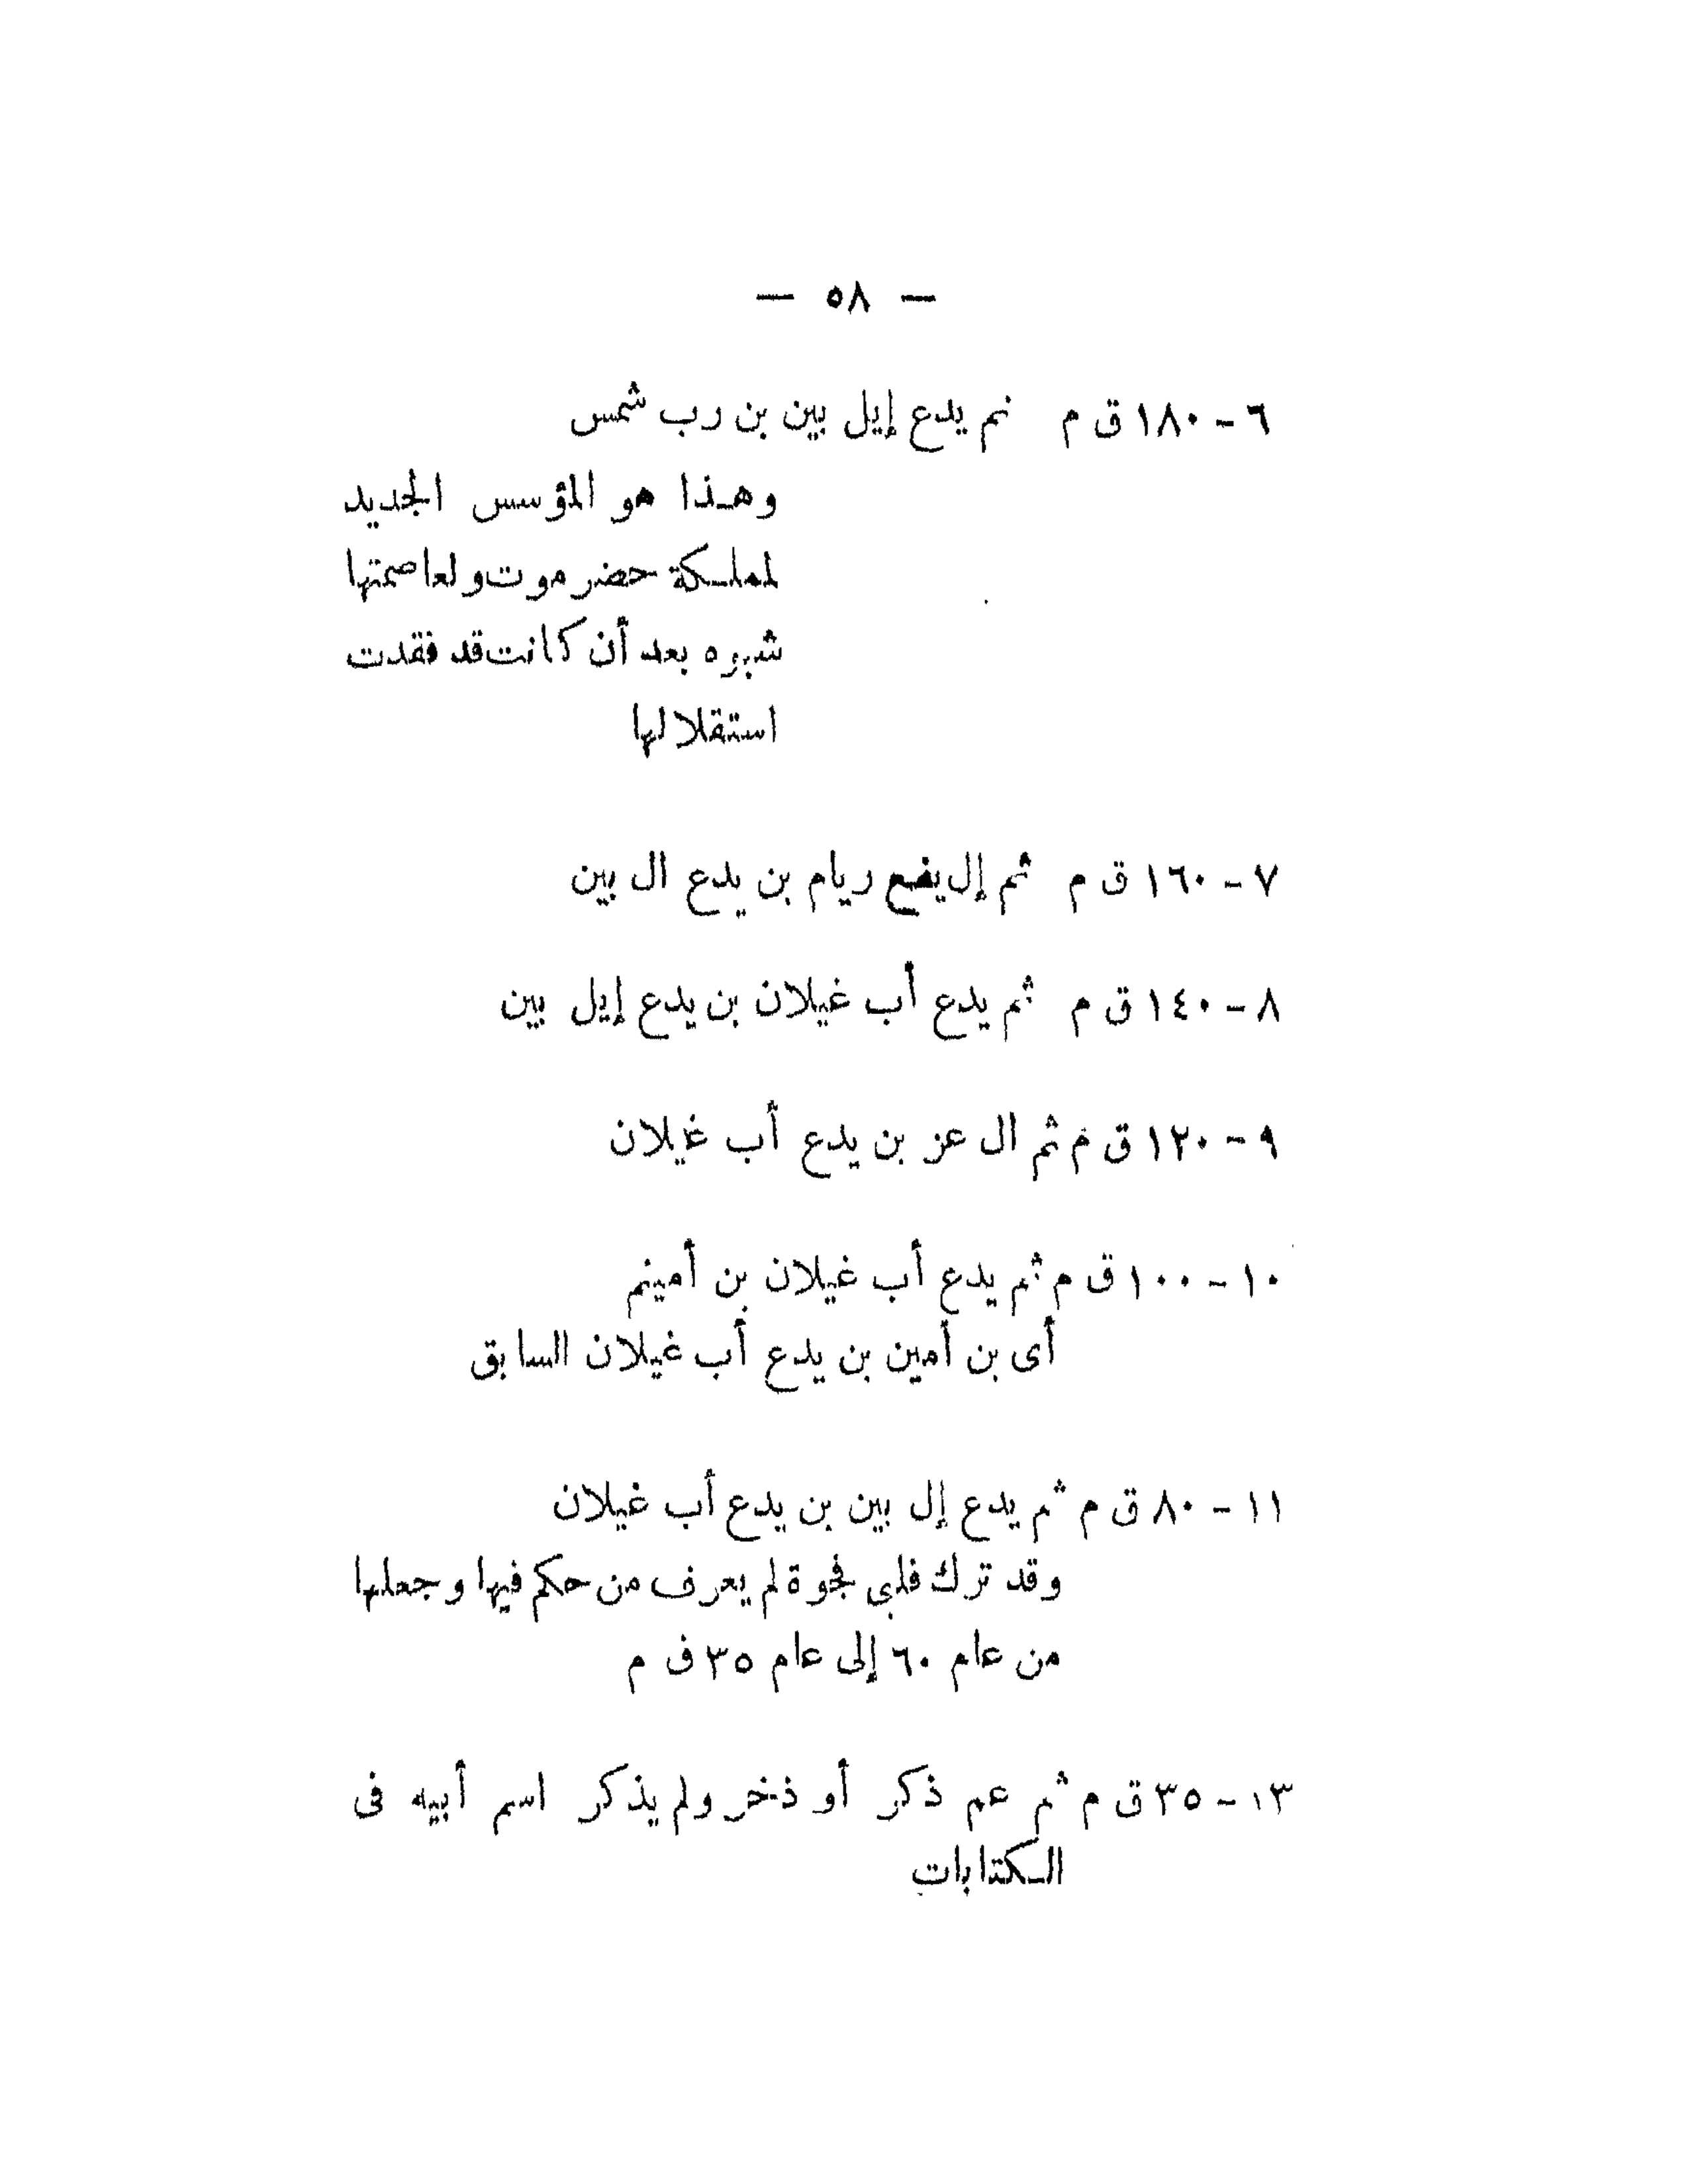 — ٥٨ —
٦ - ١٨٠ ق م ثم يدع إيل بين بن رب شمس
وهـذا هو المؤسس الجديد
لمملـكة حضرموت ولعاصمتها
شبوه بعد أن كانت قد فقدت
استقلالها
٧ - ١٦٠ ق م ثم إل يفع ريام بن يدع ال بين
٨ - ١٤٠ ق م ثم يدع أب غيلان بن يدع إيل بين
٩ - ١٢٠ ق م ثم ال عز بن يدع أب غيلان
١٠ - ١٠٠ ق م ثم يدع أب غيلان بن أمينم
أى بن أمين بن يدع أب غيلان السابق
١١ - ٨٠ ق م ثم يدع إل بين بن يدع أب غيلان
وقد ترك فلبى فجوة لم يعرف من حكم فيها وجعلها
من عام ٦٠ إلى عام ٣٥ ق م
١٣ - ٣٥ ق م ثم عم ذكر أو ذخر ولم يذكر اسم أبيه فى
الـكتابات